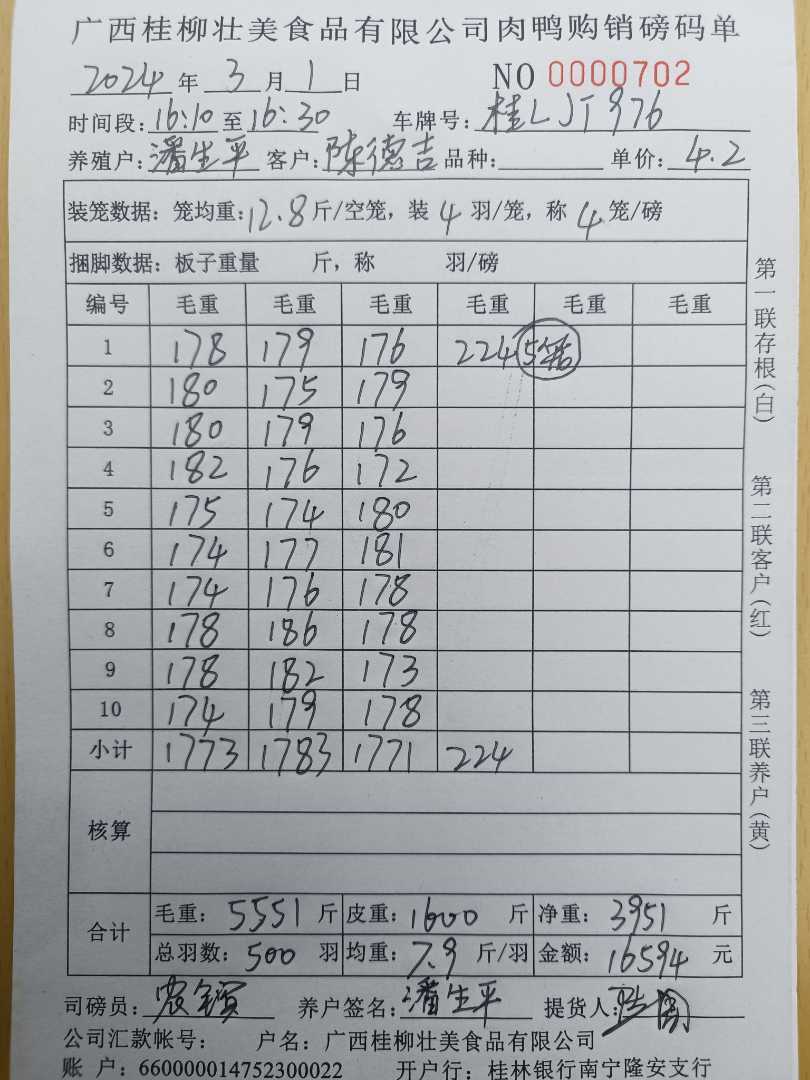 广西桂柳壮美食品有限公司肉鸭购销磅码单
2024 年 3 月 1 日 NO 0000702
时间段: 16:10 至 16:30 车牌号: 桂LJT976
养殖户: 潘生平 客户: 陈德吉 品种: 单价: 4.2
装笼数据: 笼均重: 12.8 斤/空笼, 装 4 羽/笼, 称 4 笼/磅
捆脚数据: 板子重量 斤, 称 羽/磅
编号 毛重 毛重 毛重 毛重 毛重 毛重
1 178 179 176 224 5笼
2 180 175 179
3 180 179 176
4 182 176 172
5 175 174 180
6 174 177 181
7 174 176 178
8 178 186 178
9 178 182 173
10 174 179 178
小计 1773 1783 1771 224
核算
合计 毛重: 5551 斤 皮重: 1600 斤 净重: 3951 斤
总羽数: 500 羽 均重: 7.9 斤/羽 金额: 16594 元
司磅员: 养户签名: 潘生平 提货人:
公司汇款帐号: 户名: 广西桂柳壮美食品有限公司
账 户: 660000014752300022 开户行: 桂林银行南宁隆安支行
第一联存根(白)
第二联客户(红)
第三联养户(黄)